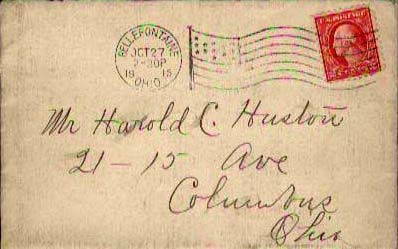 BELLEFONTAINE
OCT 27
2-30P
1915
OHIO
U.S. POSTAGE
Mr Harold C. Huston
21-15 Ave
Columbus
Ohio